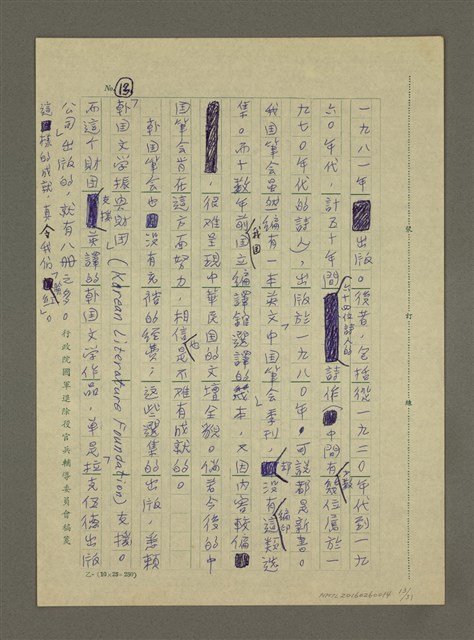 No. 13
一九八一年出版。後者，包括從一九二○年代到一九
六○年代，計五十年間六十四位詩人的詩作（中間有少數幾位屬於一
九七○年代的詩人），出版於一九八○年。可說都是新書。
我國筆會雖然編有一本英文「中國筆會季刊」，卻沒有編印這類選
集。而十數年前我國國立編譯館選譯的幾本，又因內容較偏
，很難呈現中華民國的文壇全貌。倘若今後的中
國筆會肯在這方面努力，相信也是不難有成就的。
韓國筆會也沒有充陪的經費；這些選集的出版，悉賴
「韓國文學振興財團」(Korean Literature Foundation) 支撐。
而這個財團支撐英譯的韓國文學作品，單是拉克伍德出版
公司」出版的，就有八冊之多。
這樣的成就，真令我們「臉紅」。
行政院國軍退除役官兵輔導委員會稿箋
乙—(10×25＝250)
裝 訂 線
NMTL20160260014 13/31